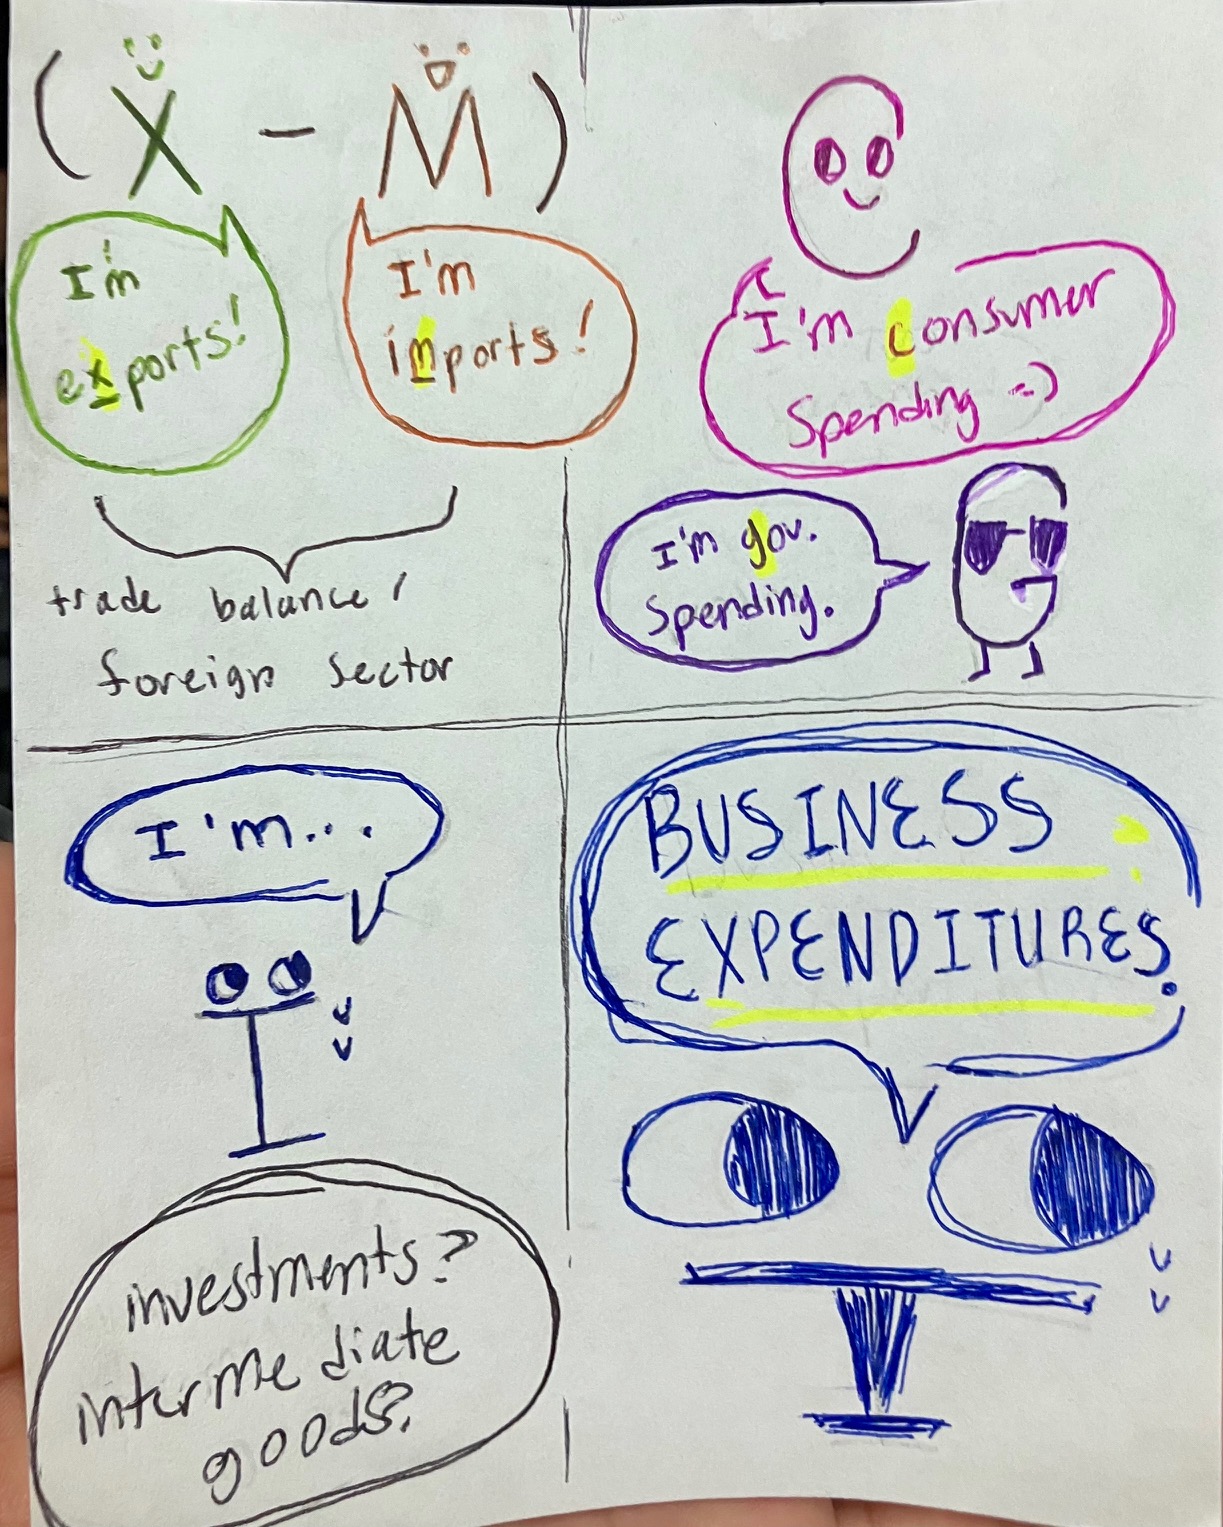 ( X - M )
I'm
exports!
I'm
imports!
trade balance/
foreign sector
C
I'm consumer
Spending =)
I'm gov.
Spending.
G
I'm...
I
investments?
intermediate
goods?
BUSINESS
EXPENDITURES.
I